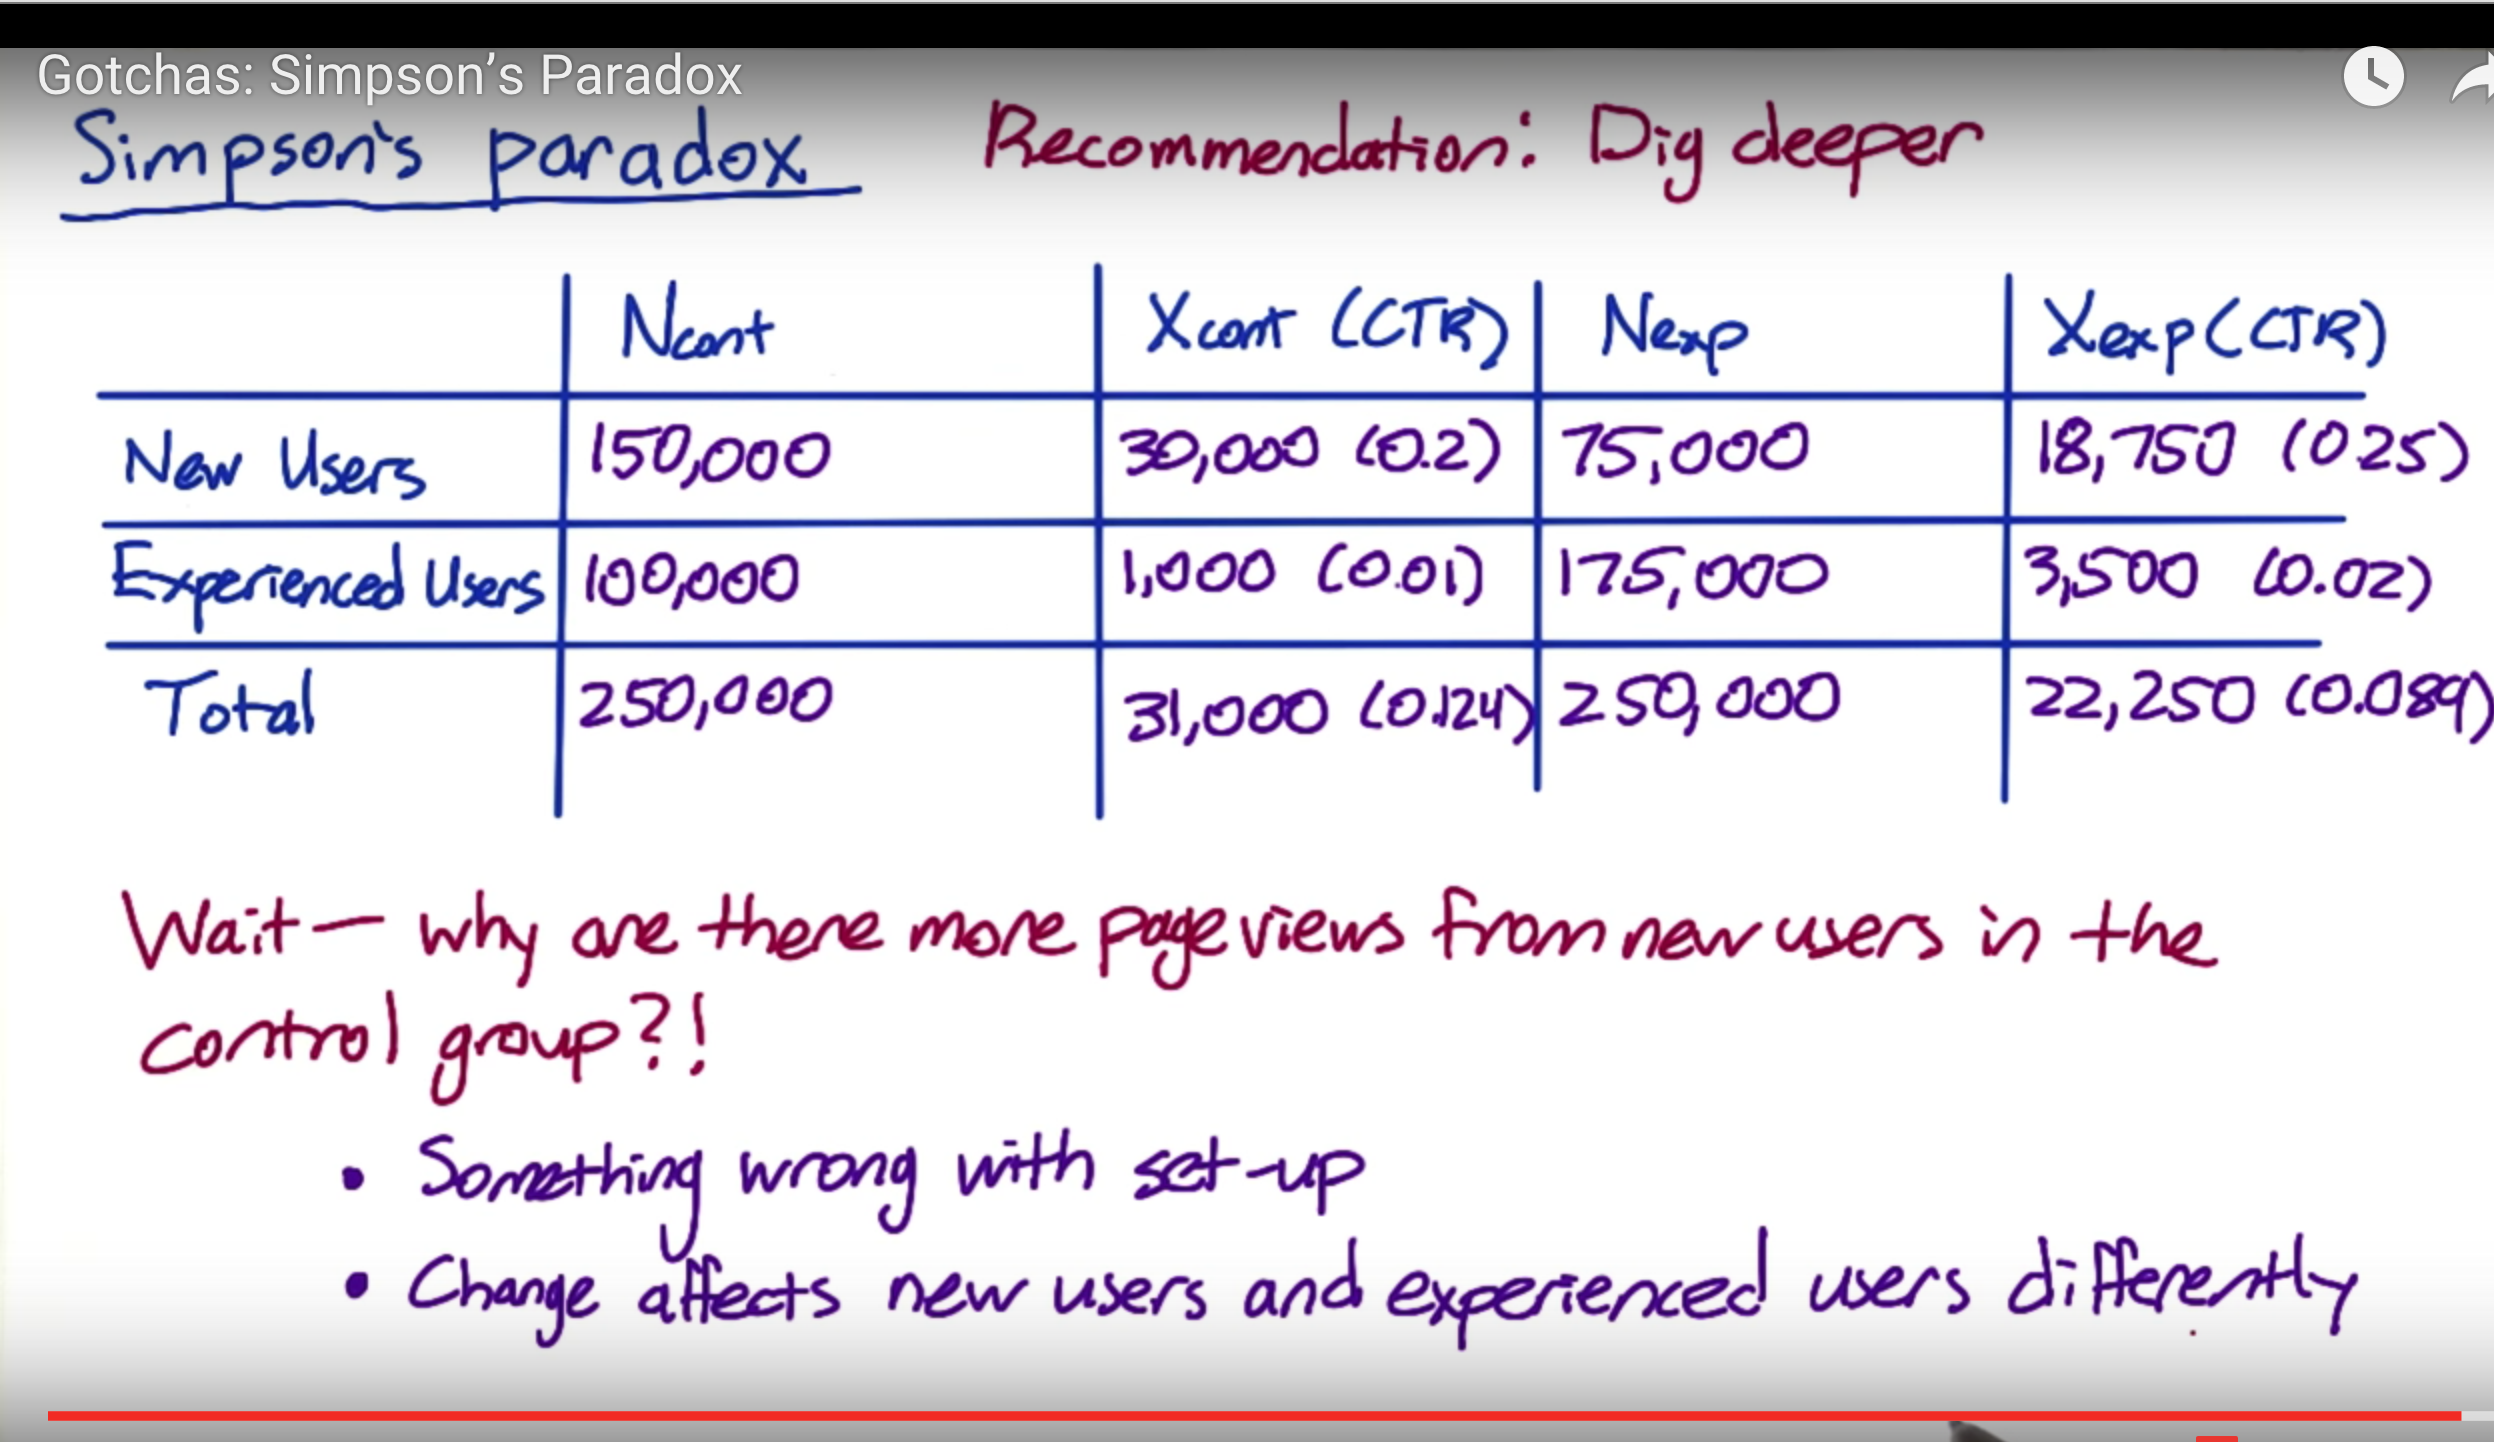 Gotchas: Simpson’s Paradox
Simpson's paradox Recommendation: Dig deeper
Ncont Xcont (CTR) Nexp Xexp (CTR)
New Users 150,000 30,000 (0.2) 75,000 18,750 (0.25)
Experienced Users 100,000 1,000 (0.01) 175,000 3,500 (0.02)
Total 250,000 31,000 (0.124) 250,000 22,250 (0.089)
Wait — why are there more pageviews from new users in the
control group?!
• Something wrong with set-up
• Change affects new users and experienced users differently